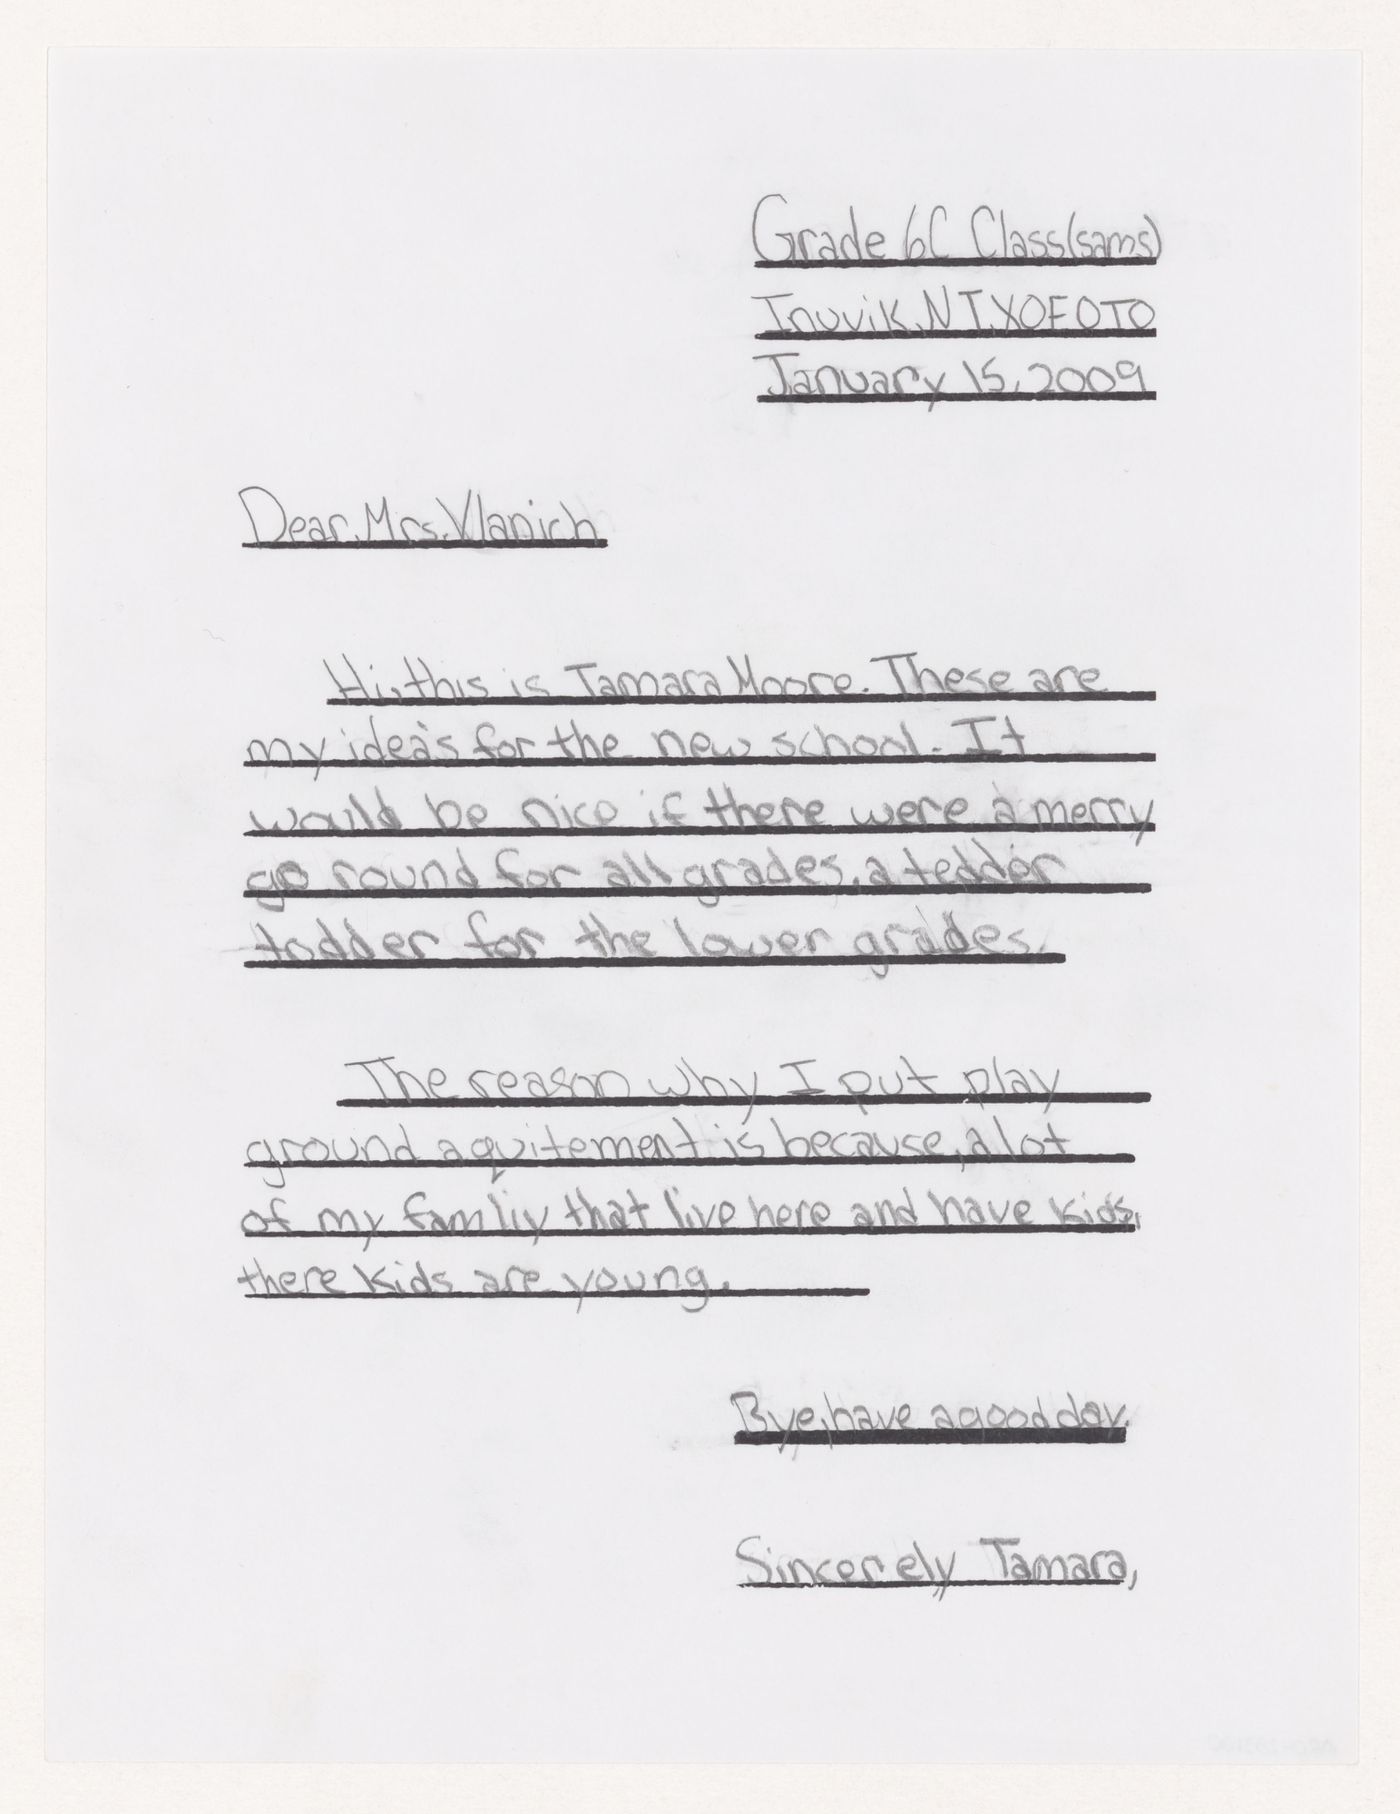 Grade 6C Class(sams)
Inuvik, NT, XOEOTO
January 15, 2009
Dear, Mrs. Vlanich
Hi, this is Tamara Moore. These are
my idea's for the new school. It
would be nice if there were a merry
go round for all grades, a tedder
todder for the lower grades.
The reason why I put play
ground aquitement is because, a lot
of my famliy that live here and have kids,
there kids are young.
Bye, have a good day.
Sincerely Tamara,